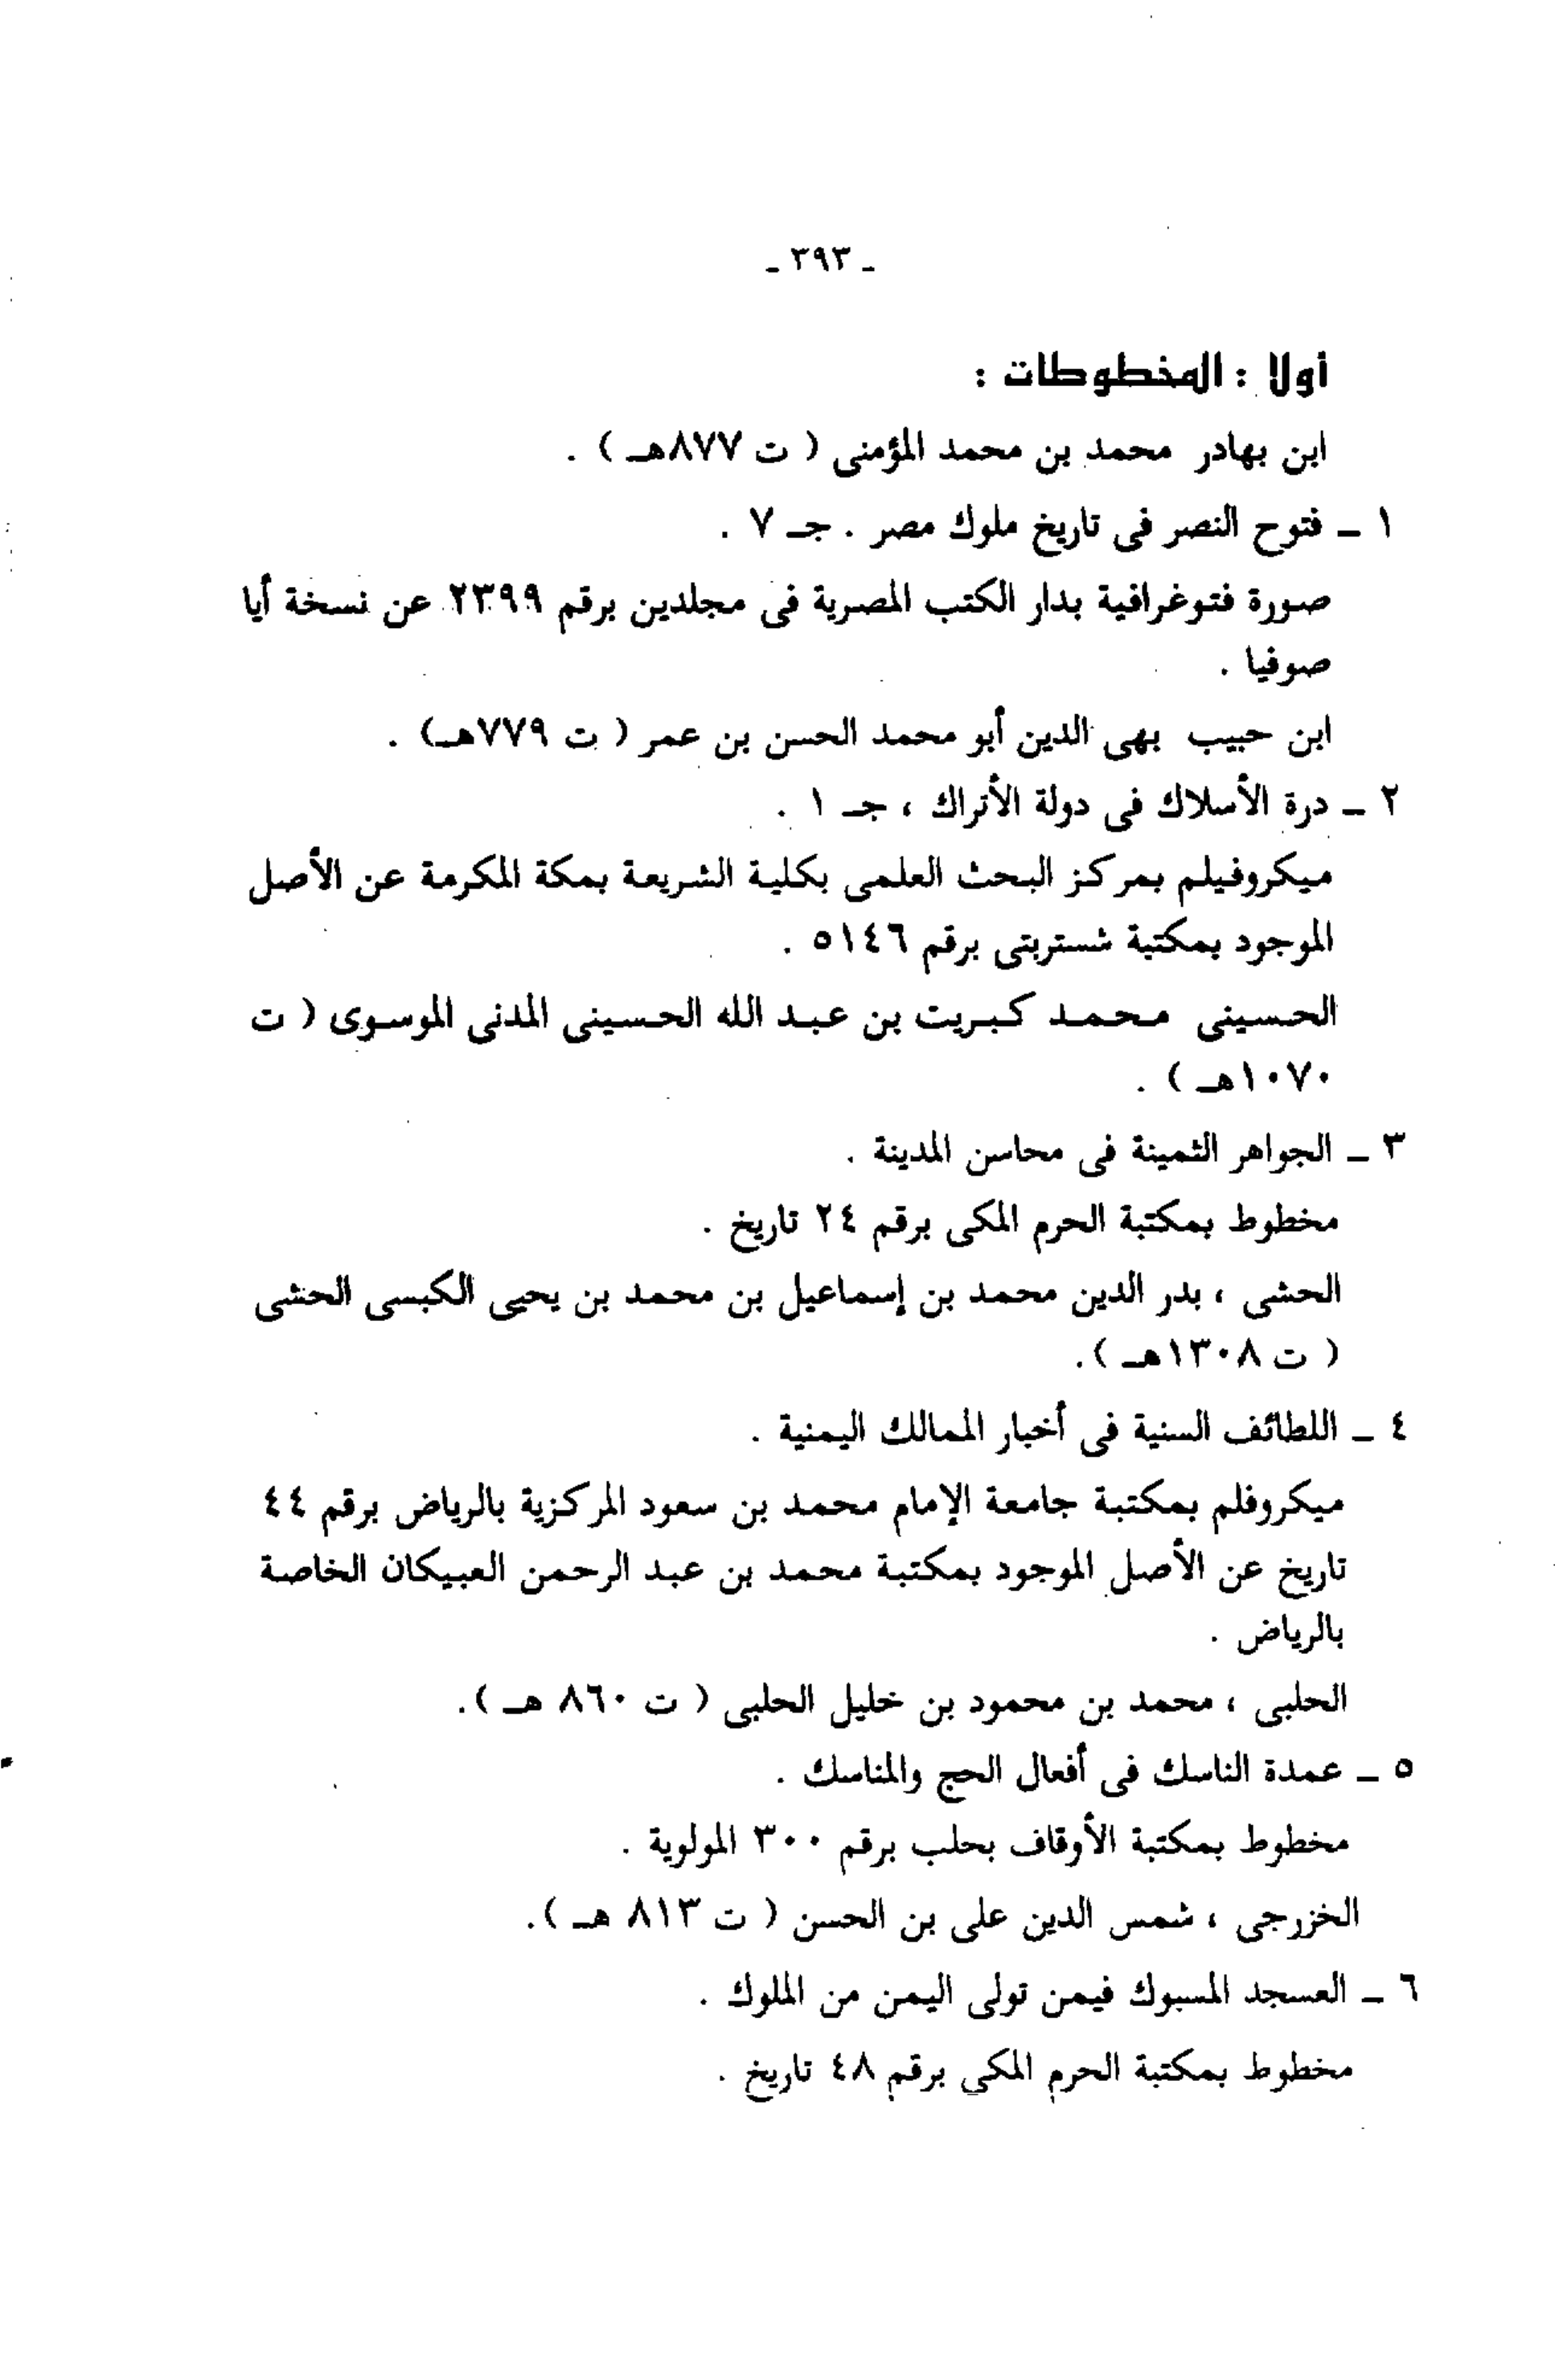 ـ ٣٩٣ ـ
أولا : المخطوطات :
ابن بهادر محمد بن محمد المؤمنى ( ت ٨٧٧هـ ) .
١ ـ فتوح النصر فى تاريخ ملوك مصر . جـ ٧ .
صورة فتوغرافية بدار الكتب المصرية فى مجلدين برقم ٢٣٩٩ عن نسخة أيا
صوفيا .
ابن حبيب بهى الدين أبو محمد الحسن بن عمر ( ت ٧٧٩هـ) .
٢ ـ درة الأسلاك فى دولة الأتراك ، جـ ١ .
ميكروفيلم بمركز البحث العلمى بكلية الشريعة بمكة المكرمة عن الأصل
الموجود بمكتبة شستربتى برقم ٥١٤٦ .
الحسينى محمد كبريت بن عبد الله الحسينى المدنى الموسوى ( ت
١٠٧٠هـ ) .
٣ ـ الجواهر الثمينة فى محاسن المدينة .
مخطوط بمكتبة الحرم المكى برقم ٢٤ تاريخ .
الحشى ، بدر الدين محمد بن إسماعيل بن محمد بن يحيى الكبسى الحشى
( ت ١٣٠٨هـ ).
٤ ـ اللطائف السنية فى أخبار الممالك اليمنية .
ميكروفلم بمكتبة جامعة الإمام محمد بن سعود المركزية بالرياض برقم ٤٤
تاريخ عن الأصل الموجود بمكتبة محمد بن عبد الرحمن العبيكان الخاصة
بالرياض .
الحلبى ، محمد بن محمود بن خليل الحلبى ( ت ٨٦٠ هـ ).
٥ ـ عمدة الناسك فى أفعال الحج والمناسك .
مخطوط بمكتبة الأوقاف بحلب برقم ٣٠٠ المولوية .
الخزرجى ، شمس الدين على بن الحسن ( ت ٨١٣ هـ ).
٦ ـ العسجد المسبوك فيمن تولى اليمن من الملوك .
مخطوط بمكتبة الحرم المكى برقم ٤٨ تاريخ .